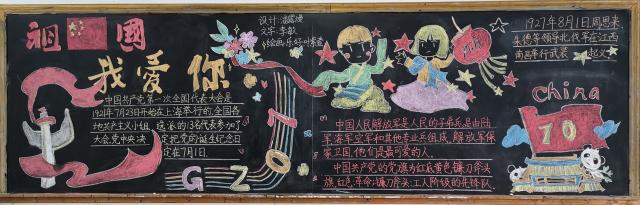 祖國
我爱你
设计:潘露熳
文字:李敏
绘画:乐妤叶紫萱
中国共产党第一次全国代表大会是
1921年7月23日开始在上海举行的,全国各
地共产主义小组选派的13名代表参加了
大会,党中央决定把党的诞生纪念日
定在7月1日.
GZ
中国人民解放军是人民的子弟兵,是由陆
军海军空军和其他专业兵组成,解放军保
家卫国,他们是最可爱的人.
中国共产党的党旗为红底黄色镰刀斧头
旗,红色:革命;镰刀斧头:工人阶级的先锋队
1927年8月1日周恩来
朱德等领导北伐军在江西
南昌举行武装起义
China
70